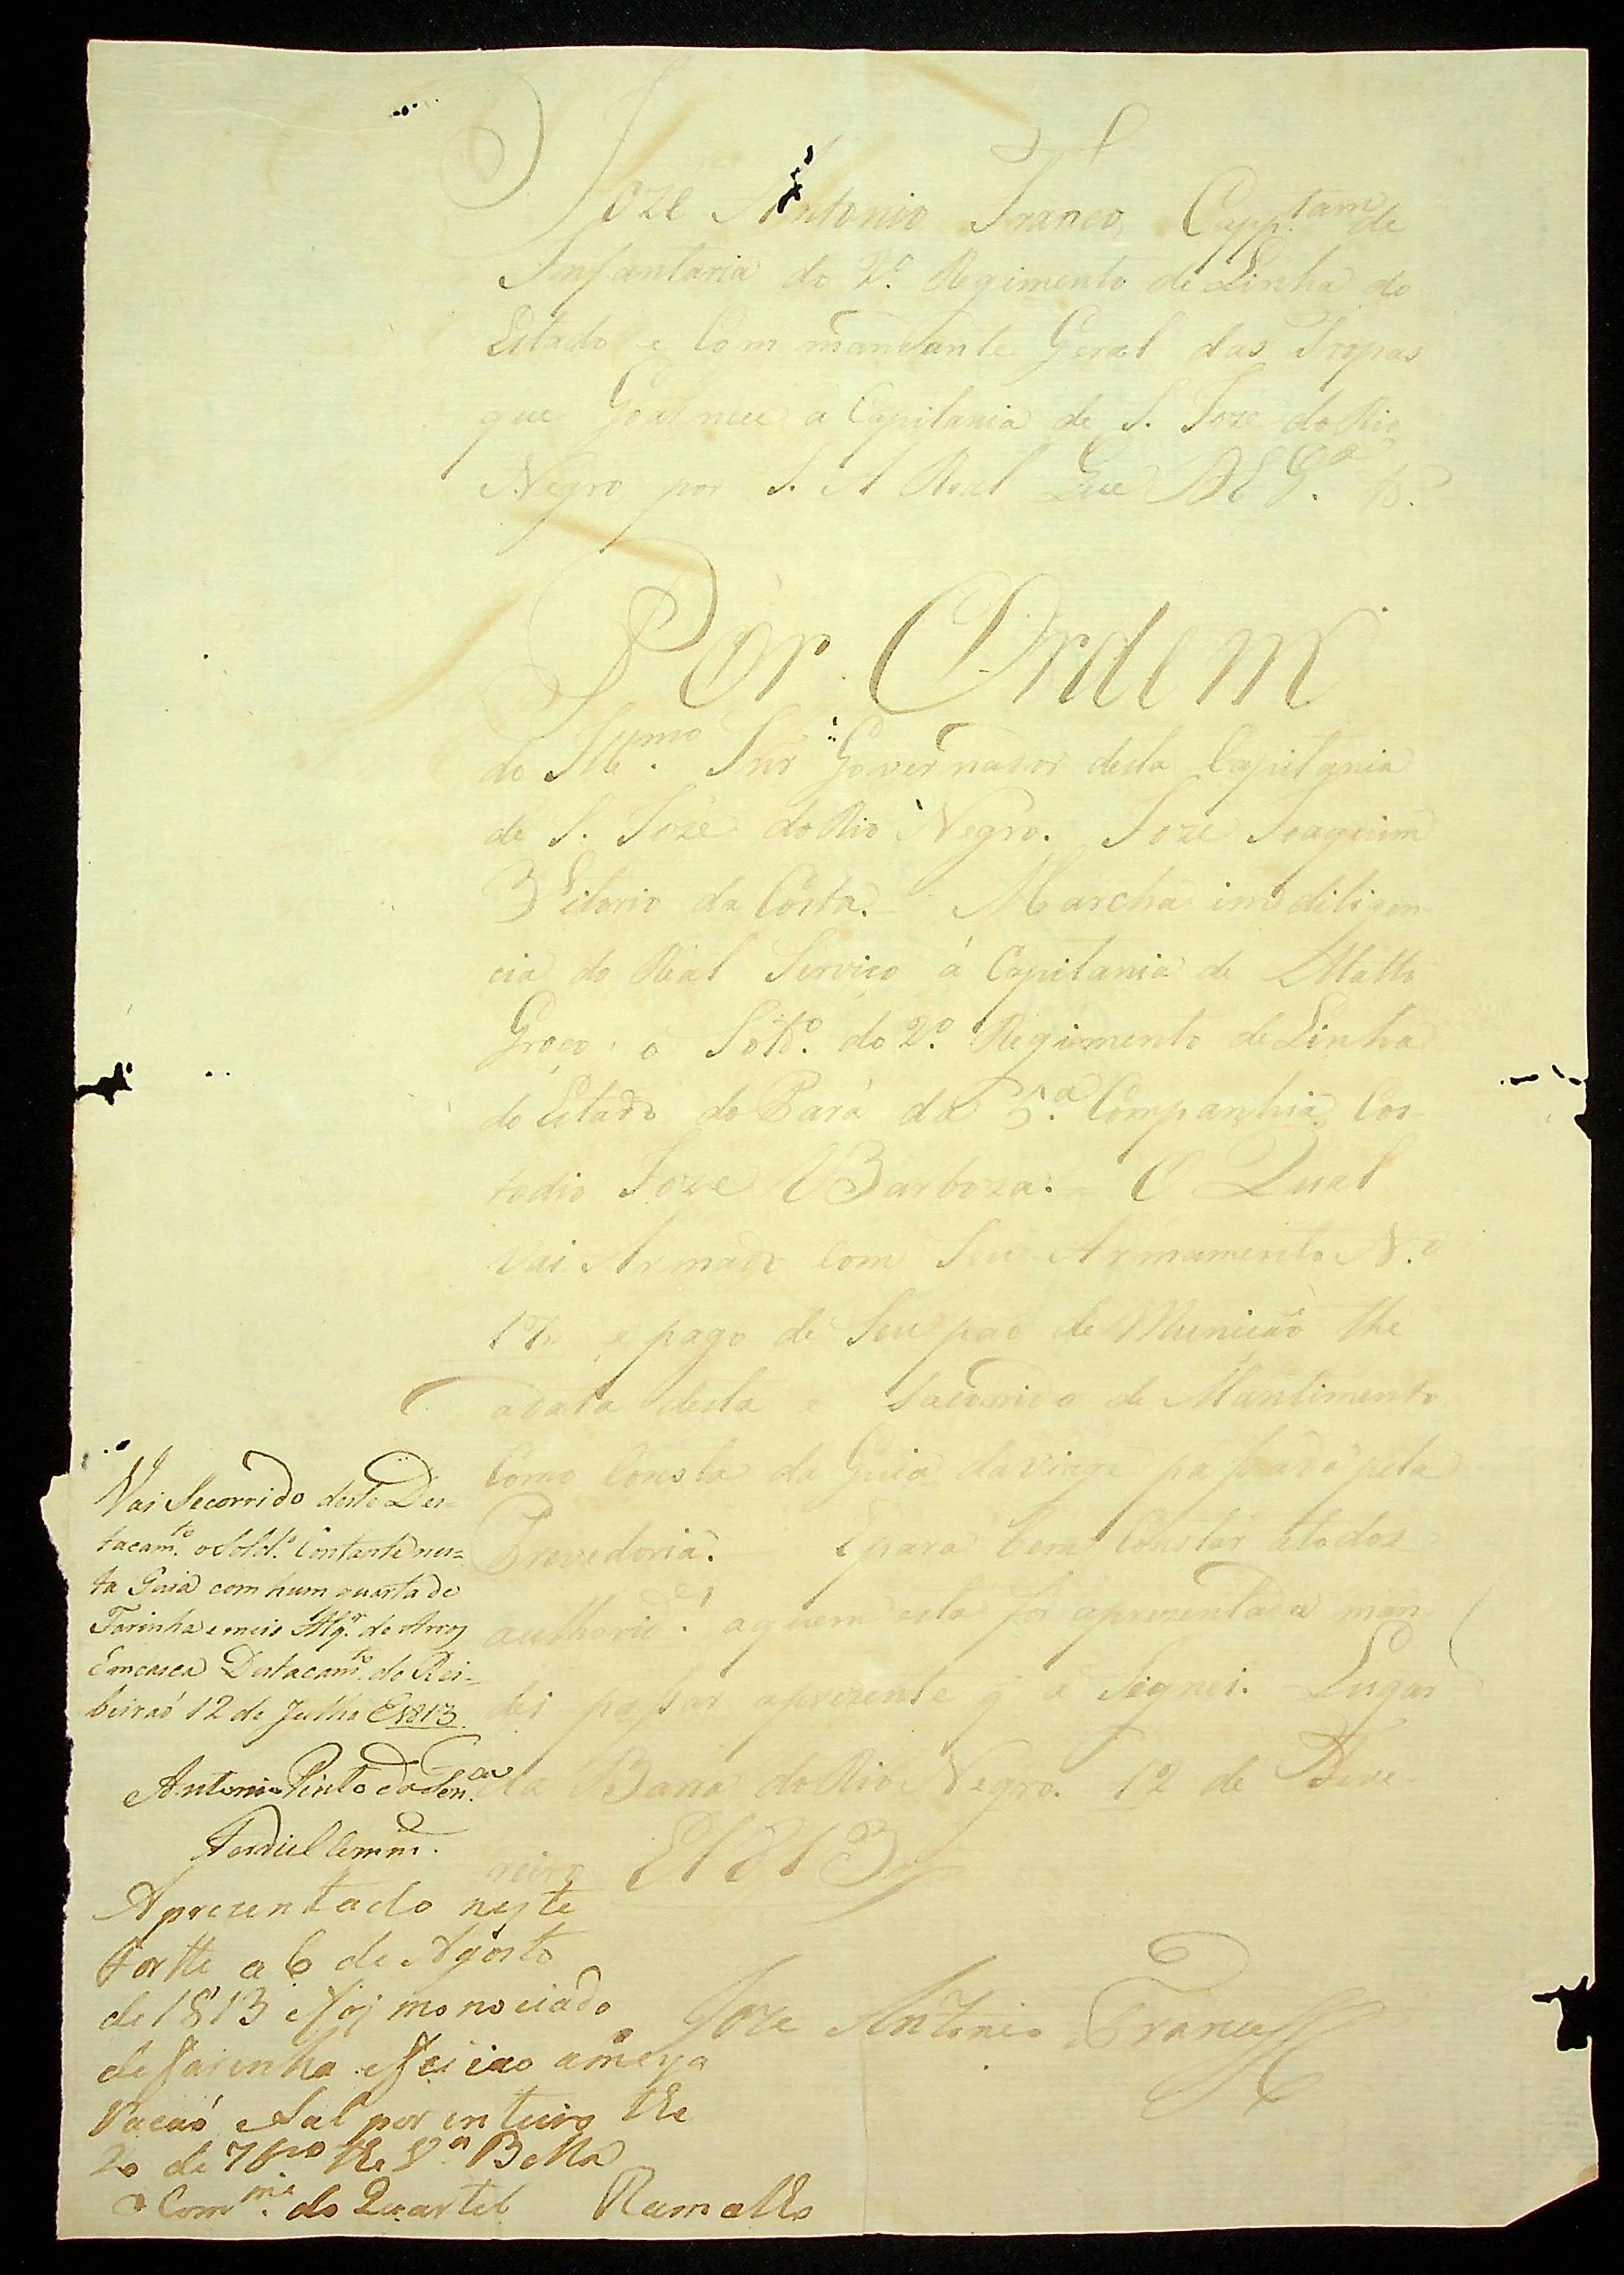 Joze Antonio Franco, Capp.tam de
Infantaria do 2º. Regimento de Linha do
Estado e Com mandante Geral das Tropas
que Goarnece a Capitania de S. Joze do Rio
Negro, por S. A Real Que D E G.e &.ª
Por Ordem
do Illmo. Snr Governador desta Capitania
de S. Joze do Rio Negro. Joze Joaquim
Vitorio da Costa. Marcha im diligen-
cia do Real Serviço á Capitania de Matto
Groço, o Sold.º do 2º. Regimento de Linha
do Estado do Pará da 5.ª Companhia, Cos-
todio Joze Barboza. O Qual
Vai Armado Com Seu Armamento N.º
e pago de Seu pao de Munição the
adata desta e Sacorrido de Mantimento
Como Consta da Guia paßada pela
Provedoria. E para bem Constar atodas
authorid.es aquem esta for aprezentada man-
dei paßar aprezente q a Signei. Lugar
da Barra do Rio Negro. 12 de Feve-
reiro E1813
Joze Antonio Franco
Vai Secorrido deste Des-
tacam.to o Sold.º Contante nes=
ta Guia com hum quarta de
Farinha e meio Alq.r de Arroz
Emcasca Destacam.to do Ri-
beiraó 12 de Julho E1813
Antonio Pinto da
Comm.
Aprezentado neste
Fortte a 6 de Agosto
de 1813
de Farinha Feijao ameya
Racaó e Sal por inteiro the
20 de 7bro the V.ª Bella
Comm.e do Quartel Ramalho